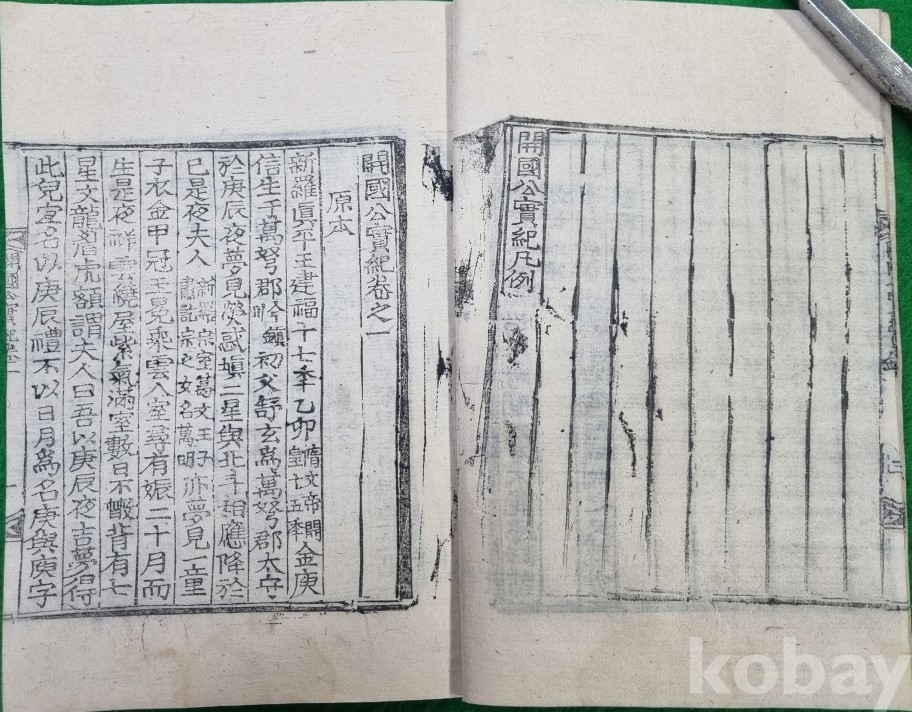 開國公實紀凡例
開國公實紀卷之一
原本
新羅眞平王建福十七年乙卯隋文帝開皇十五季金庾
信生于萬弩郡鎭初父舒玄爲萬弩郡太守
於庚辰夜夢見熒惑塡二星與北斗相應降於
已是夜夫人新羅宗室葛文王子訖宗之女名萬明亦夢見童
子衣金甲冠王冕乘雲入室尋有娠二十月而
生是夜祥雲繞屋紫氣滿室數日不輟背有七
星文龍虎額謂夫人曰吾以庚辰夜吉夢得
此兒宜名以庚辰禮不以日月爲名庚與庾字
kobay